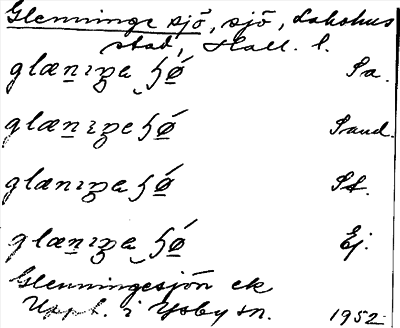 Glenninge sjö, sjö, Laholms
stad, Hall. l.
glænıŋa ɧǿ Sa.
glænıŋe ɧǿ Sand.
glænıŋa ɧǿ St.
glænıŋa ɧǿ Ej.
Glenningesjön ek
Uppt. i Ysby sn. 1952